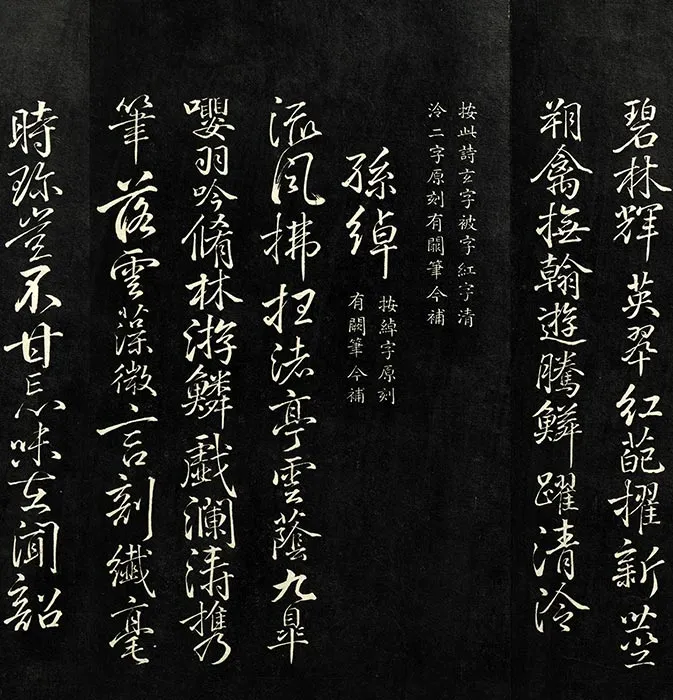 碧林輝英翠紅葩擢新莖
翔禽撫翰遊騰鱗躍清泠
按此詩玄字被字紅字清
泠二字原刻有闕筆今補
孫綽
按綽字原刻
有闕筆今補
流風拂枉渚亭雲蔭九皐
嚶羽吟脩林游鱗戲瀾濤攜
筆落雲藻微言剖纖毫
時珍豈不甘忘味在聞韶